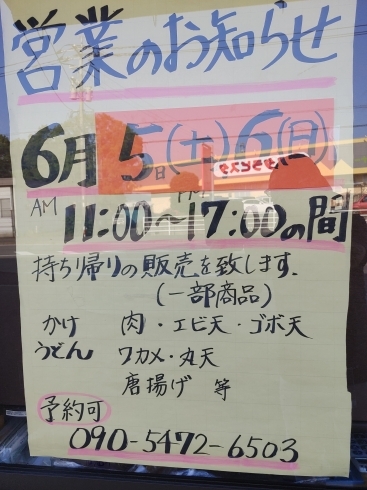 営業のお知らせ
6月5日(土)6(日)
AM PM
11:00～17:00の間
持ち帰りの販売を致します.
(一部商品)
かけ 肉・エビ天・ゴボ天
うどん ワカメ・丸天
唐揚げ 等
予約可
090-5472-6503